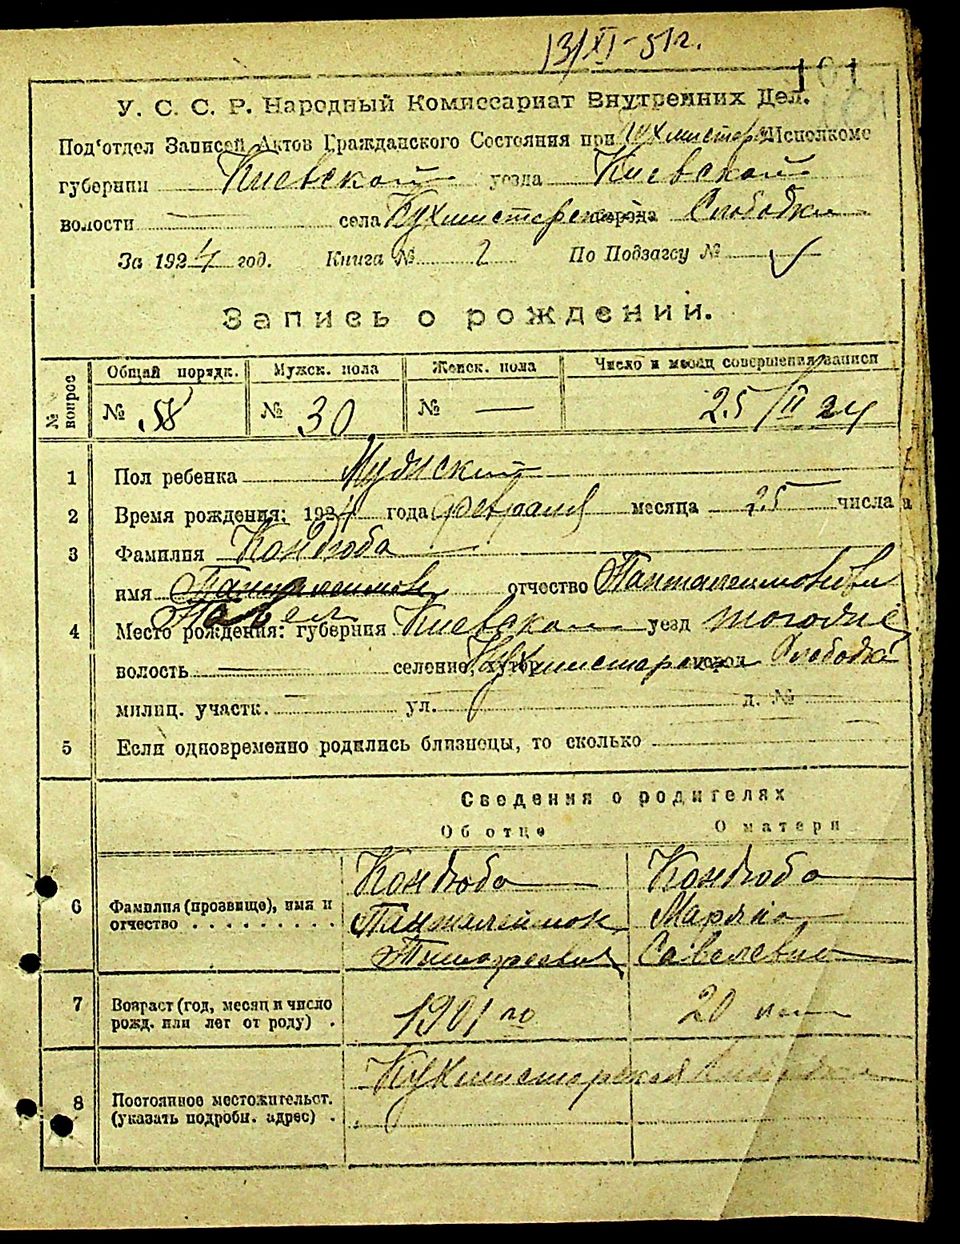 13/XI-51г.
101
У. С. С. Р. Народный Комиссариат Внутренних Дел.
Подотдел Записей Актов Гражданского Состояния при Исполкоме
губернии Киевской уезда Киевской
волости — села Кухмистерской города Слободки
За 1924 год. Книга № 2 По Подзагсу №
Запись о рождении.
№ вопрос
Общий порядк. Мужск. пола Женск. пола Число и месяц совершения записи
№ 58 № 30 № — 25/II 24
1 Пол ребенка Мужский
2 Время рождения: 1924 года февраля месяца 25 числа
3 Фамилия Кондюба
имя Пантелеимон отчество Пантелеимонович
Павел
4 Место рождения: губерния Киевской уезд тогоже
волость — селение, хутор Кухмистерск город Слободка
милиц. участк. ул. д. №
5 Если одновременно родились близнецы, то сколько
Сведения о родителях
Об отце О матери
6 Фамилия (прозвище), имя и отчество
Кондюба Пантелеймон Тимофеевич
Кондюба Марьяна Савелевна
7 Возраст (год, месяц и число рожд. или лет от роду)
1901 го 20 лет
8 Постоянное местожительст. (указать подробн. адрес)
Кухмистерская Слободка